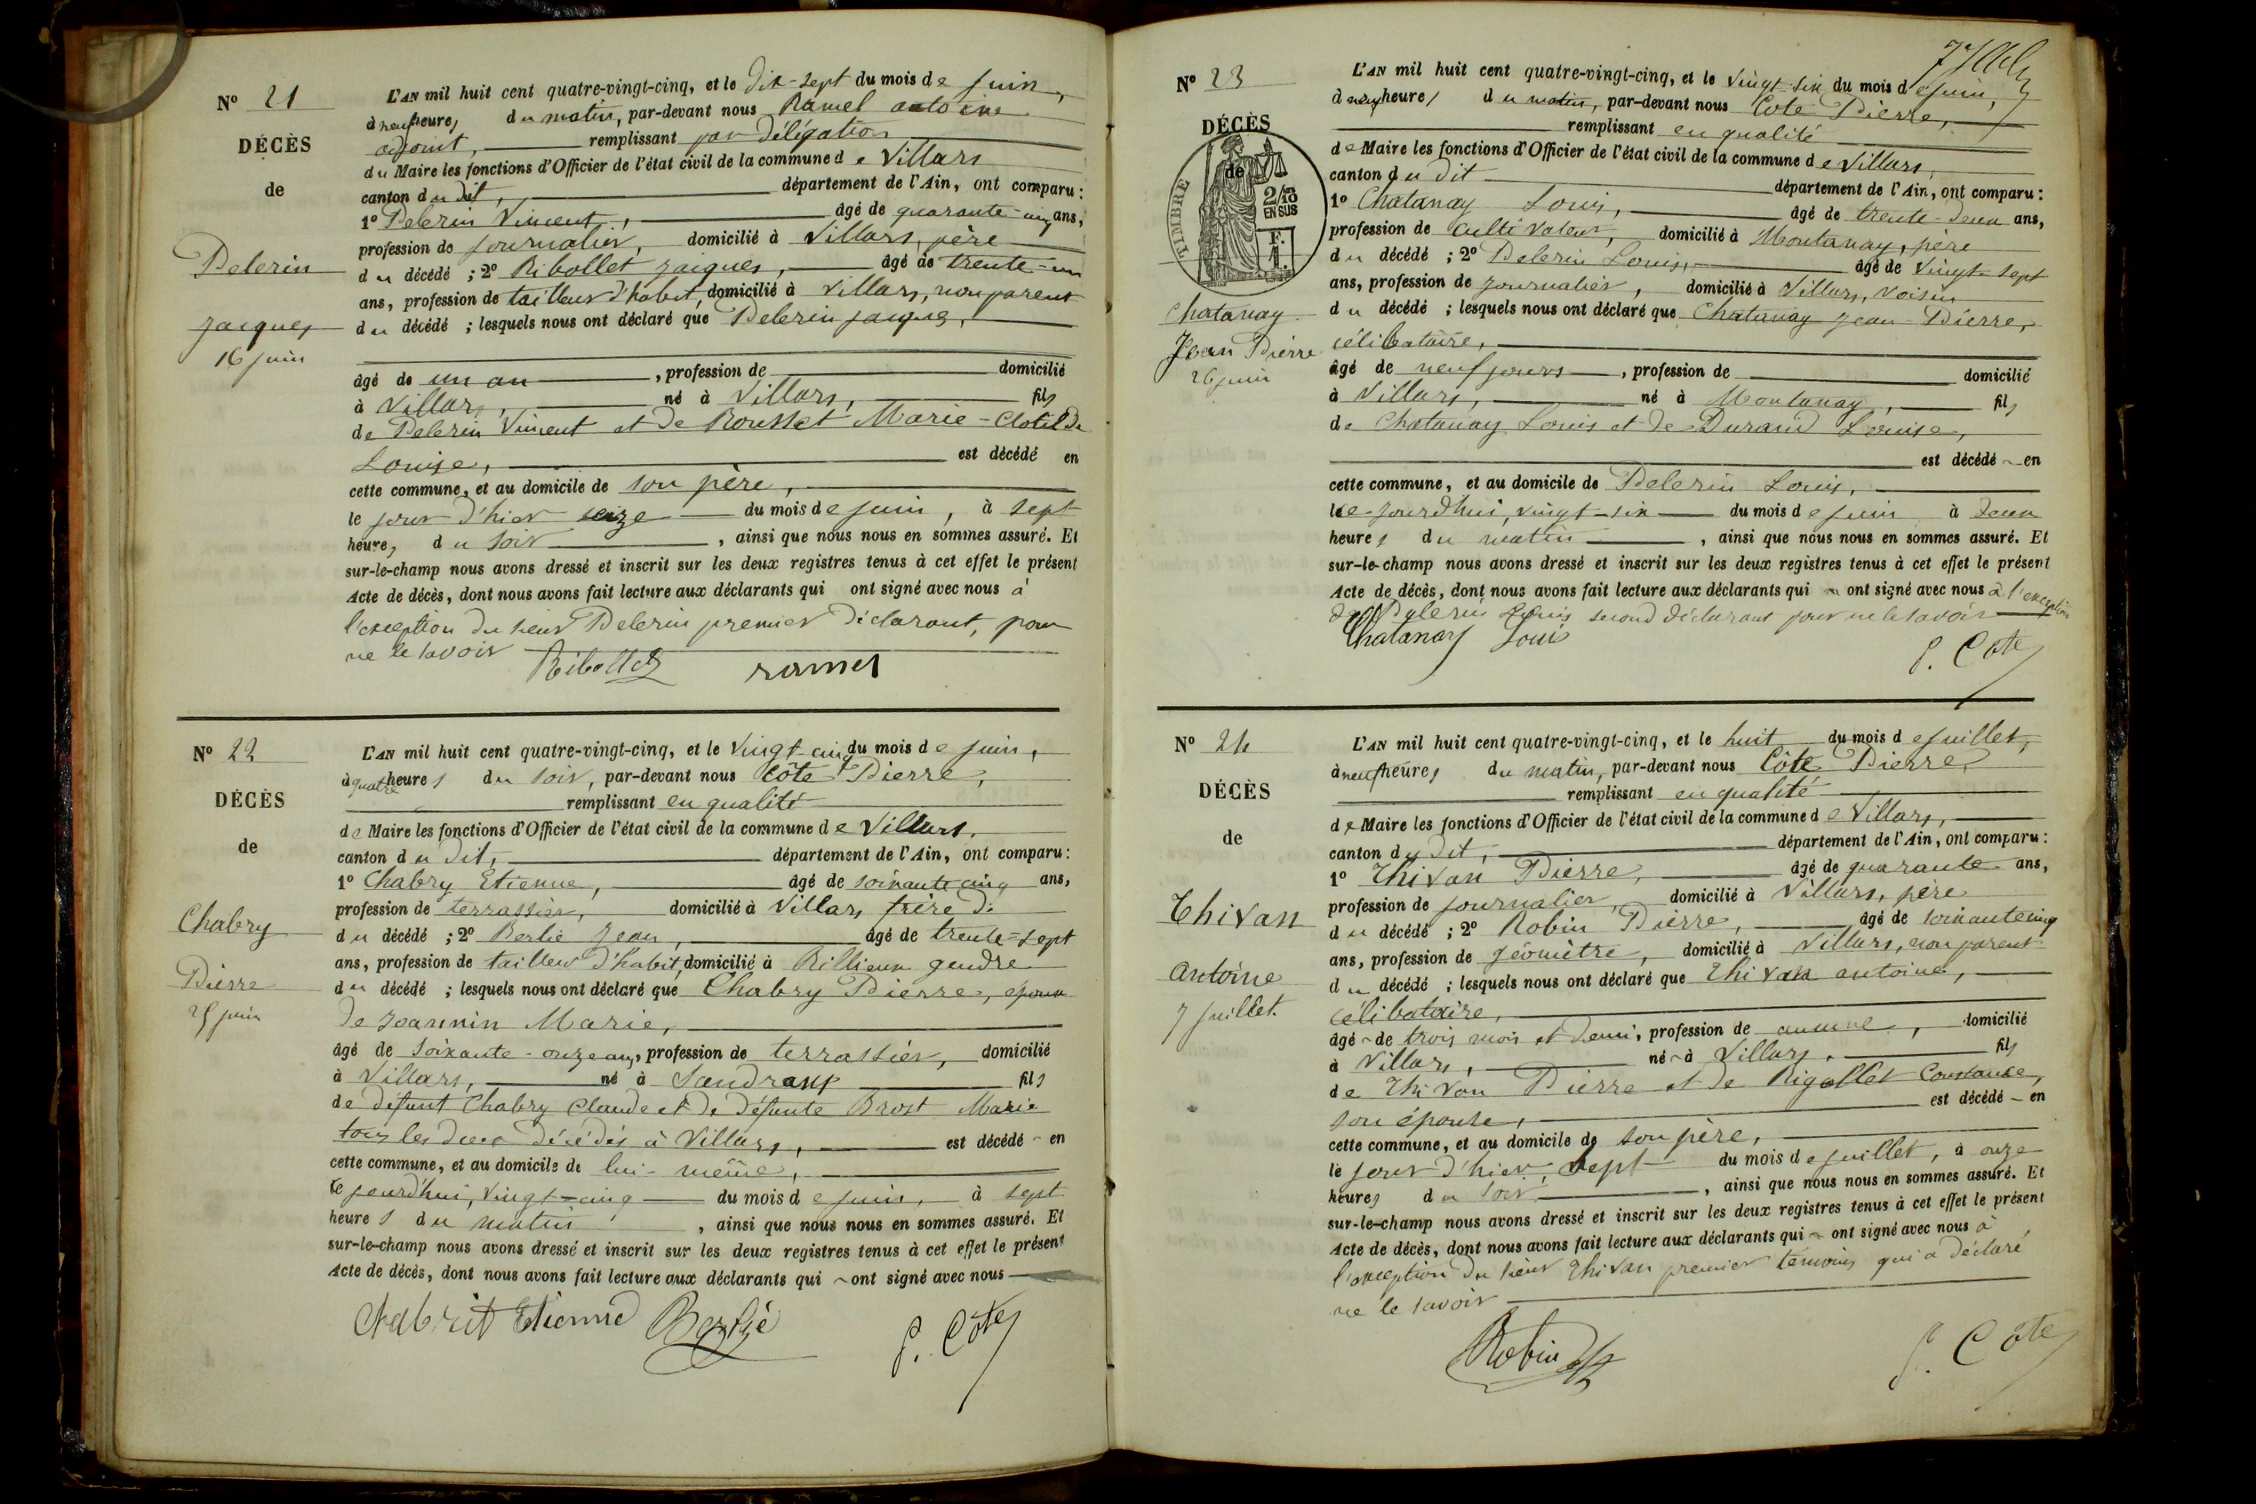 N° 21
DÉCÈS
de
Pelerin
Jacques
16 juin
L'AN mil huit cent quatre-vingt-cinq, et le dix-sept du mois de juin,
à neuf heures du matin, par-devant nous Ramel antoine
adjoint, remplissant par délégation
du Maire les fonctions d'Officier de l'état civil de la commune de Villars
canton du dit, département de l'Ain, ont comparu :
1° Pelerin Vincent, âgé de quarante-cinq ans,
profession de journalier, domicilié à Villars, père
du décédé ; 2° Ribollet jacques, âgé de trente-un
ans, profession de tailleur d'habit, domicilié à Villars, non parent
du décédé ; lesquels nous ont déclaré que Pelerin jacques,
âgé de un an, profession de domicilié
à Villars, né à Villars, fils
de Pelerin Vincent et de Rousset Marie-Clotilde
Louise, est décédé en
cette commune, et au domicile de son père,
le jour d'hier seize du mois de juin, à sept
heures du soir, ainsi que nous nous en sommes assuré. Et
sur-le-champ nous avons dressé et inscrit sur les deux registres tenus à cet effet le présent
Acte de décès, dont nous avons fait lecture aux déclarants qui ont signé avec nous à
l'exception du sieur Pelerin premier déclarant, pour
ne le savoir
Ribollet ramel
N° 22
DÉCÈS
de
Chabry
Pierre
25 juin
L'AN mil huit cent quatre-vingt-cinq, et le vingt-cinq du mois de juin,
à quatre heures du soir, par-devant nous Côte Pierre,
remplissant en qualité
de Maire les fonctions d'Officier de l'état civil de la commune de Villars,
canton du dit, département de l'Ain, ont comparu :
1° Chabry Etienne, âgé de soixante cinq ans,
profession de terrassier, domicilié à Villars frère d
du décédé ; 2° Berlie Jean, âgé de trente-sept
ans, profession de tailleur d'habit, domicilié à Rillieux gendre
du décédé ; lesquels nous ont déclaré que Chabry Pierre, époux
de Jeannin Marie,
âgé de soixante-onze ans, profession de terrassier, domicilié
à Villars, né à Sandrans fils
de défunt Chabry Claude et de défunte Brost Marie
tous les deux décédés à Villars, est décédé en
cette commune, et au domicile de lui-même,
le jourd'hui, vingt-cinq du mois de juin, à sept
heures du matin, ainsi que nous nous en sommes assuré. Et
sur-le-champ nous avons dressé et inscrit sur les deux registres tenus à cet effet le présent
Acte de décès, dont nous avons fait lecture aux déclarants qui ont signé avec nous
Chabrit Etienne Berlié P. Côte
N° 23
DÉCÈS
de
TIMBRE
2/10
EN SUS
F.
1.
Chatanay
Jean Pierre
26 juin
L'AN mil huit cent quatre-vingt-cinq, et le vingt-six du mois de juin,
à heures du matin, par-devant nous Cote Pierre,
remplissant en qualité
de Maire les fonctions d'Officier de l'état civil de la commune de Villars,
canton du dit département de l'Ain, ont comparu :
1° Chatanay Louis, âgé de trente-deux ans,
profession de cultivateur, domicilié à Montanay, père
du décédé ; 2° Pelerin Louis, âgé de vingt-sept
ans, profession de journalier, domicilié à Villars, voisin
du décédé ; lesquels nous ont déclaré que Chatanay Jean-Pierre,
célibataire,
âgé de neuf jours, profession de domicilié
à Villars, né à Montanay, fils
de Chatanay Louis et de Durand Louise,
est décédé en
cette commune, et au domicile de Pelerin Louis,
le jourd'hui, vingt-six du mois de juin à deux
heures du matin, ainsi que nous nous en sommes assuré. Et
sur-le-champ nous avons dressé et inscrit sur les deux registres tenus à cet effet le présent
Acte de décès, dont nous avons fait lecture aux déclarants qui ont signé avec nous à l'exception
de Pelerin Louis second déclarant pour ne le savoir
Chatanay Loui
P. Côte
N° 24
DÉCÈS
de
Thivan
Antoine
7 juillet.
L'AN mil huit cent quatre-vingt-cinq, et le huit du mois de juillet,
à neuf heures du matin, par-devant nous Côte Pierre,
remplissant en qualité
de Maire les fonctions d'Officier de l'état civil de la commune de Villars,
canton du dit, département de l'Ain, ont comparu :
1° Thivan Pierre, âgé de quarante ans,
profession de journalier, domicilié à Villars, père
du décédé ; 2° Robin Pierre, âgé de soixante cinq
ans, profession de géomètre, domicilié à Villars, non parent
du décédé ; lesquels nous ont déclaré que Thivan antoine,
célibataire,
âgé de trois mois et demi, profession de aucune, domicilié
à Villars, né à Villars, fils
de Thivan Pierre et de Rigollet Constance,
son épouse, est décédé en
cette commune, et au domicile de son père,
le jour d'hier, sept du mois de juillet, à onze
heures du soir, ainsi que nous nous en sommes assuré. Et
sur-le-champ nous avons dressé et inscrit sur les deux registres tenus à cet effet le présent
Acte de décès, dont nous avons fait lecture aux déclarants qui ont signé avec nous à
l'exception du sieur Thivan premier témoins qui a déclaré
ne le savoir
Robin P. Côte